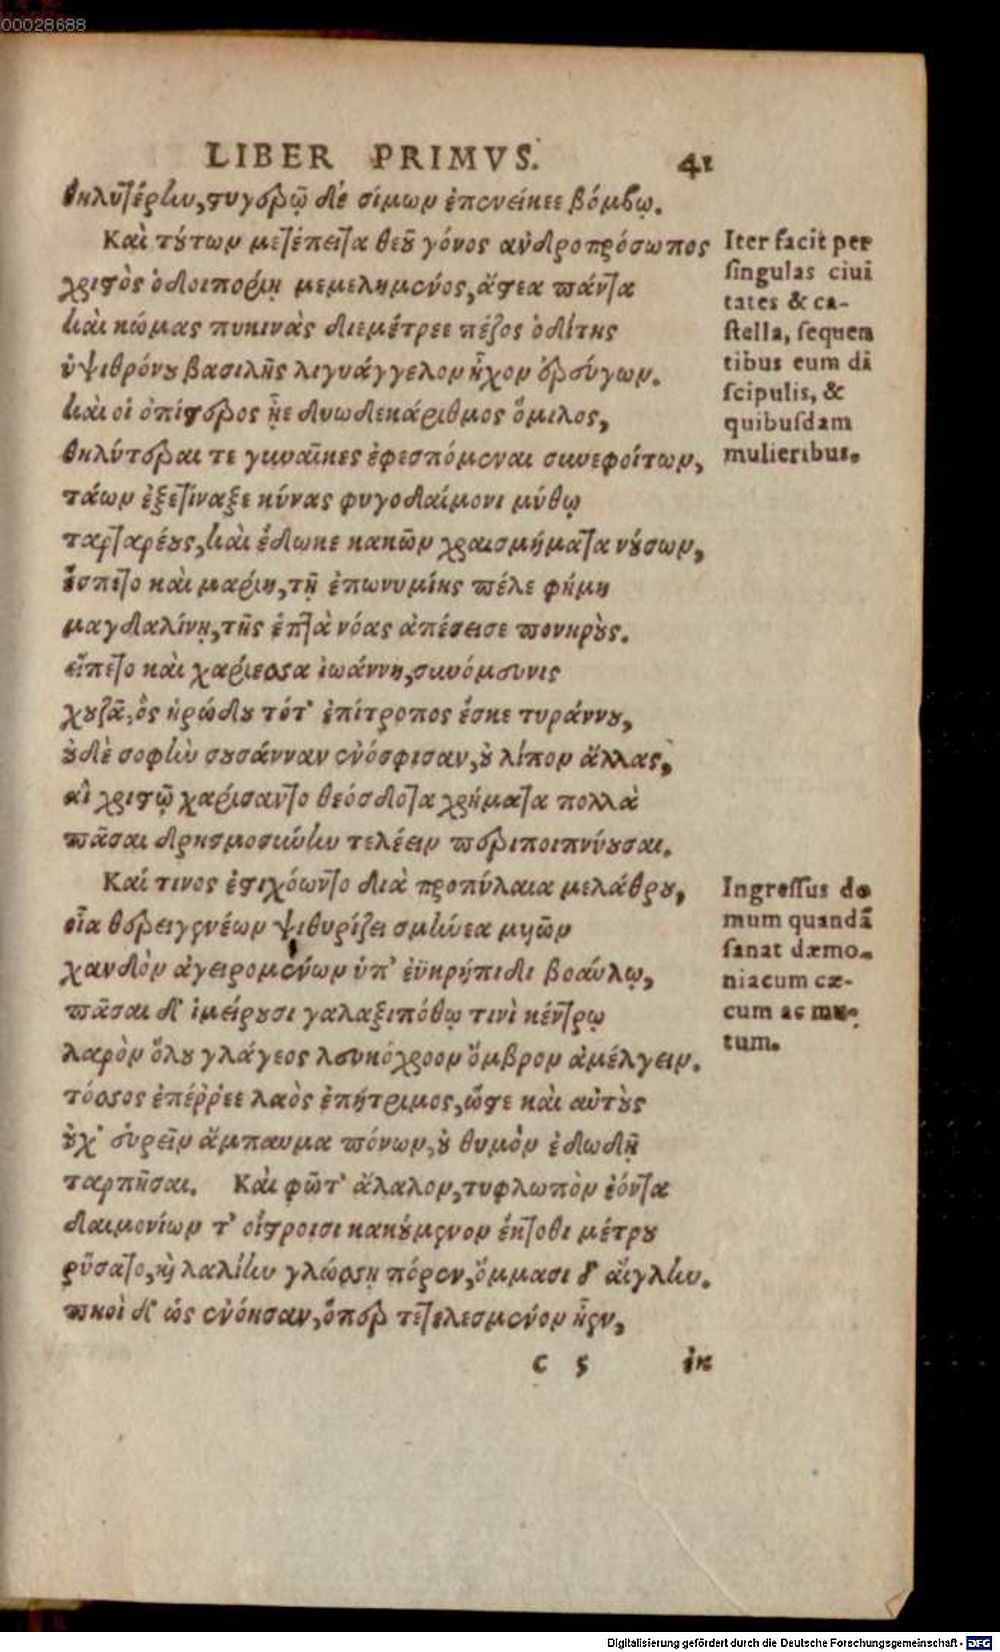 00028688
LIBER PRIMVS. 41
θηλυτέρην, στυγερῷ δὲ σίμων ἐπενείκεε βόμβῳ.
Καὶ τούτων μετέπειτα θεοῦ γόνος ἀνδροπρόσωπος
χριστὸς ὁδοιπορίῃ μεμελημένος, ἄστεα πάντα
καὶ κώμας πυκινὰς διεμέτρεε πέζος ὁδίτης
ὑψιθρόνου βασιλῆς λιγυάγγελον ἦχον ἐρεύγων.
καὶ οἱ ὀπίστερος ᾖε δυωδεκάριθμος ὅμιλος,
θηλύτεραι τε γυναῖκες ἐφεσπόμεναι συνεφοίτων,
τάων ἐξετίναξε κύνας φυγοδαίμονι μύθῳ
ταρταρέους, καὶ ἔδωκε κακῶν χραισμήματα νούσων,
ἕσπετο καὶ μαρίη, τῇ ἐπωνυμίης πέλε φήμη
μαγδαλίνῃ, τῆς ἑπτὰ νόας ἀπέσεισε πονηρούς.
εἵπετο καὶ χαρίεσσα ἰωάννη, συνόμευνις
χουζᾶ, ὃς ἡρώδου τότ' ἐπίτροπος ἔσκε τυράννου,
οὐδὲ σοφὴν σουσάνναν ἐνόσφισαν, οὐ λίπον ἄλλας,
αἳ χριστῷ χαρίσαντο θεόσδοτα χρήματα πολλὰ
πᾶσαι δρησμοσύνην τελέειν περιποιπνύουσαι.
Καί τινος ἐστιχόωντο διὰ προπύλαια μελάθρου,
οἷα θερειγενέων ψιθυρίζει σμήνεα μυιῶν
χανδὸν ἀγειρομένων ὑπ' ἐϋκρήπιδι βοαύλῳ,
πᾶσαι δ' ἱμείρουσι γαλαξιπόθῳ τινὶ κέντρῳ
λαρὸν ὅλου γλάγεος λευκόχροον ὄμβρον ἀμέλγειν.
τόσσος ἐπέρρεε λαὸς ἐπήτριμος, ὥστε καὶ αὐτοὺς
οὐχ' εὑρεῖν ἄμπαυμα πόνων, οὐ θυμὸν ἐδωδῇ
ταρπῆσαι. Καὶ φῶτ' ἄλαλον, τυφλωπὸν ἐόντα
δαιμονίων τ' οἴστροισι κακούμενον ἔκτοθι μέτρου
ῥύσατο, καὶ λαλίην γλώσσῃ πόρεν, ὄμμασι δ' αἴγλην.
πηοὶ δ' ὡς ἐνόησαν, ὅπερ τετελεσμένον ἦεν,
C 5 ἐκ
Iter facit per
singulas ciui
tates & ca-
stella, sequen
tibus eum di
scipulis, &
quibusdam
mulieribus.
Ingressus do
mum quandã
sanat dæmo-
niacum cæ-
cum ac mu-
tum.
Digitalisierung gefördert durch die Deutsche Forschungsgemeinschaft - DFG